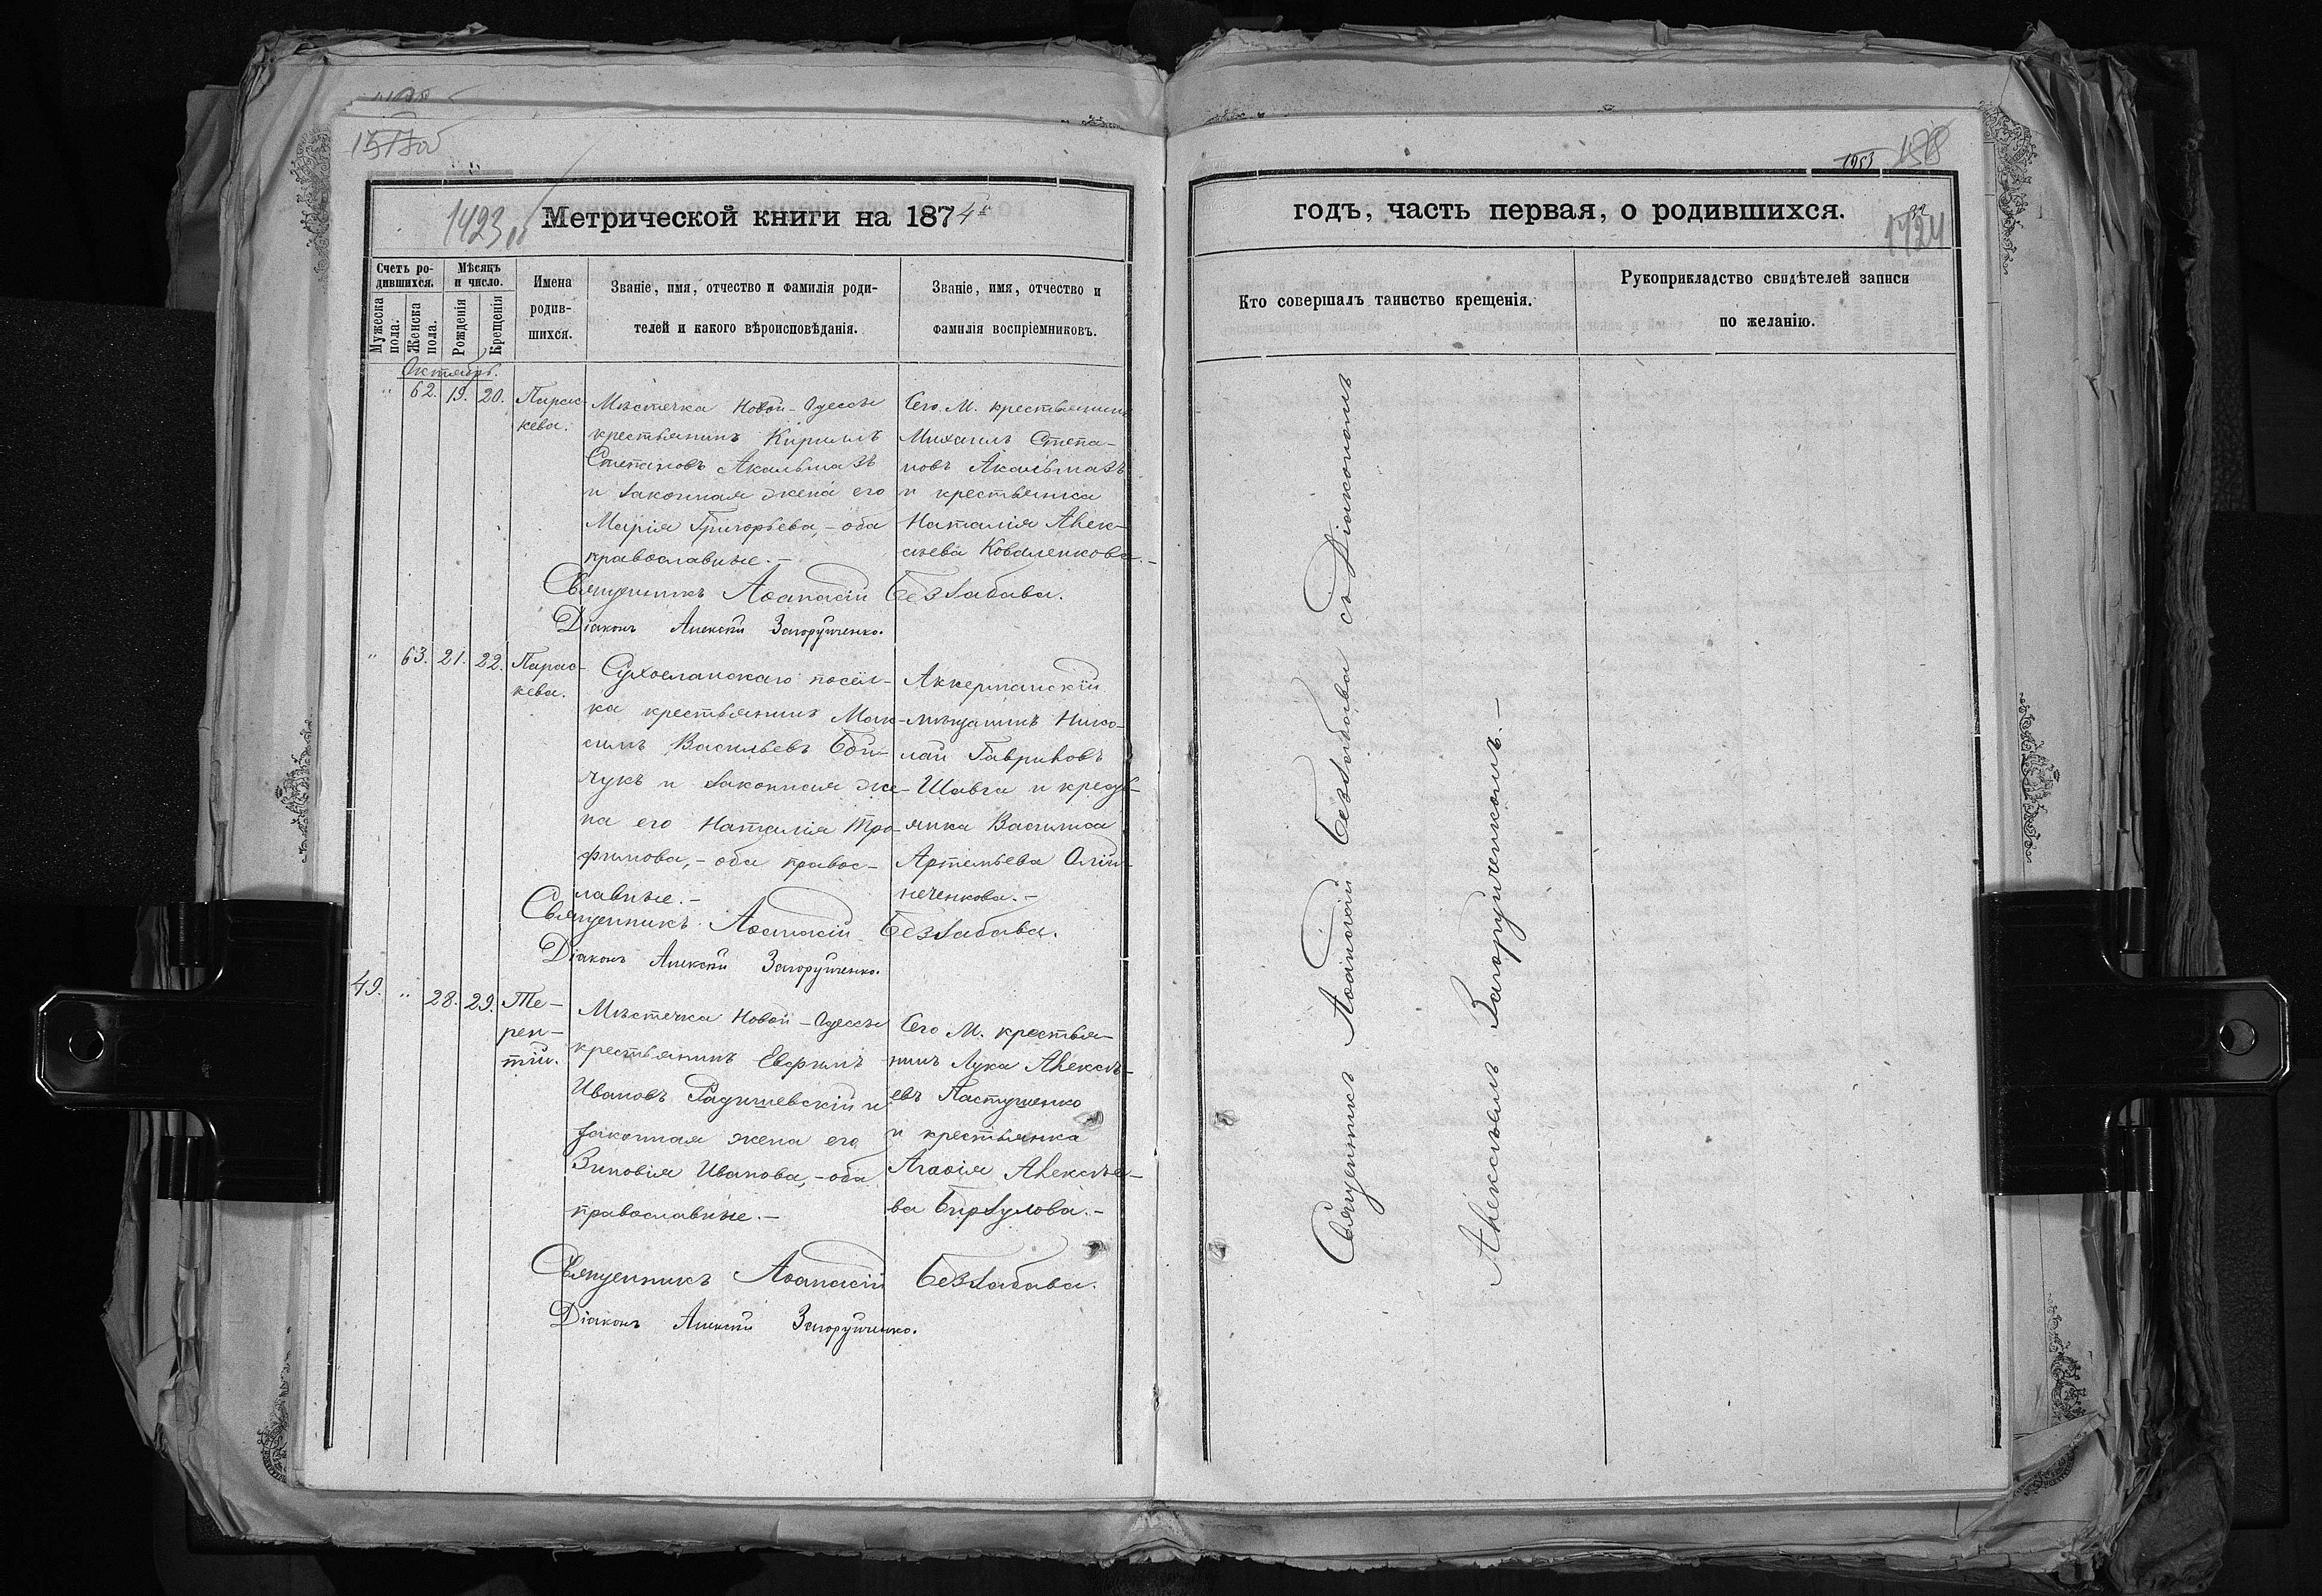 1423
Метрической книги на 1874
Счетъ ро-
дившихся.
Мужеска пола.
Женска пола.
Мѣсяцъ
и число.
Рожденія
Крещенія
Имена
родив-
шихся.
Званіе, имя, отчество и фамилія роди-
телей и какого вѣроисповѣданія.
Званіе, имя, отчество и
фамилія воспріемниковъ.
Октябрь.
" 62. 19. 20.
Парас-
кева.
Мѣстечка Новой-Одессы
крестьянинъ Кирилъ
Степановъ Акальмазъ
и законная жена его
Марія Григорьева,- оба
православные.-
Сего М. крестьянинъ
Михаилъ Степа-
новъ Акальмазъ
и крестьянка
Наталія Алек-
сѣева Коваленкова.-
Священникъ Аѳанасій Беззабава.
Діаконъ Алексѣй Загоруйченко.
" 63. 21. 22.
Парас-
кева.
Сухоеланскаго посел-
ка крестьянинъ Мак-
симъ Васильевъ
и законная же-
на его Наталія Тро-
фимова,- оба правос-
лавные.-
Аккерманскій
мѣщанинъ Нико-
лай Гавриловъ
Шавга и кресть-
янка Василиса
Артемьева Олій-
неченкова.-
Священникъ Аѳанасій Беззабава.
Діаконъ Алексѣй Загоруйченко.
49. " 28. 29.
Те-
рен-
тій.
Мѣстечка Новой-Одессы
крестьянинъ Евфимъ
Ивановъ Радишевскій и
законная жена его
Зиновія Иванова,- оба
православные.-
Сего М. крестья-
нинъ Лука Алексѣ-
евъ Пастушенко
и крестьянка
Агаѳія Алексѣе-
ва Бирзулова.-
Священникъ Аѳанасій Беззабава.
Діаконъ Алексѣй Загоруйченко.
1953
годъ, часть первая, о родившихся.
1424
Кто совершалъ таинство крещенія.
Рукоприкладство свидѣтелей записи
по желанію.
Священникъ Аѳанасій Беззабава съ Діакономъ
Алексѣемъ Загоруйченкомъ.-